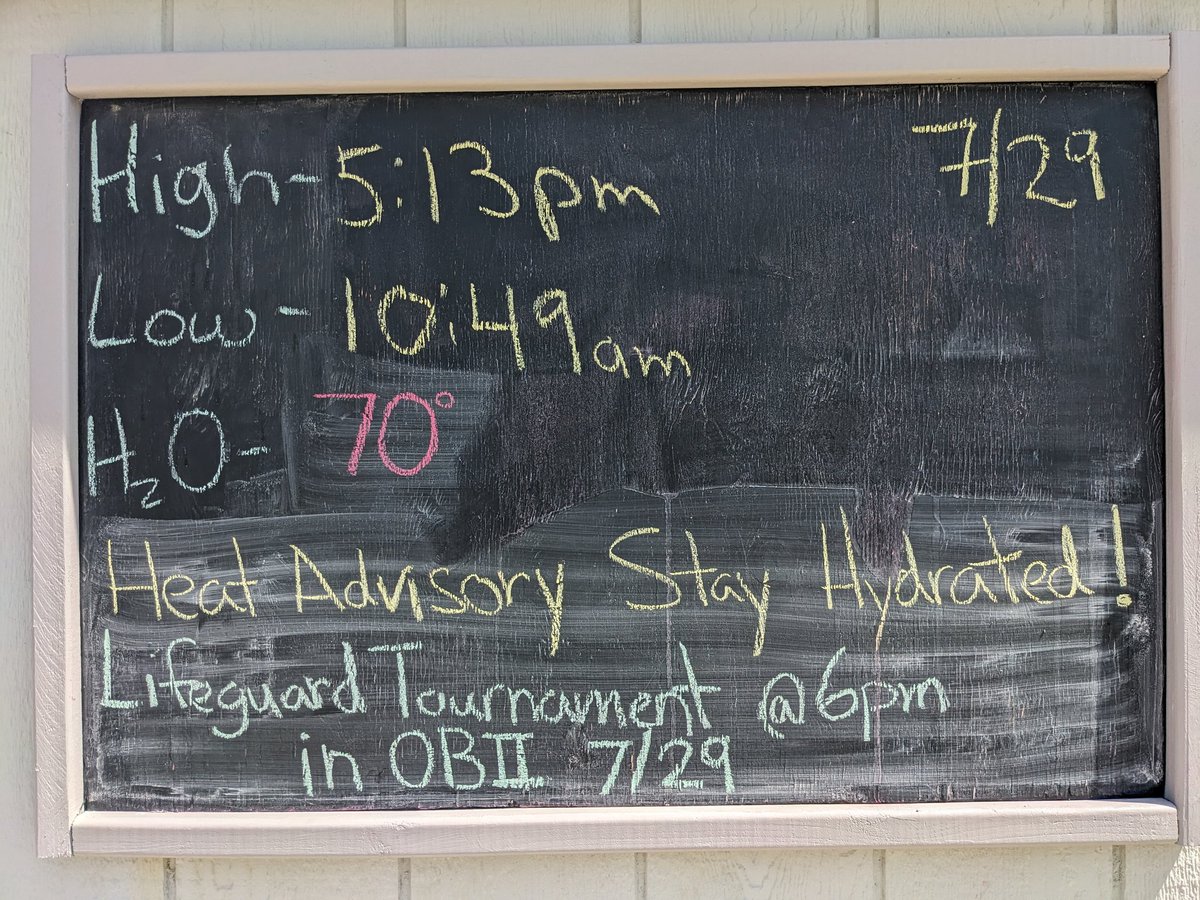 High - 5:13pm 7/29
Low - 10:49am
H₂O - 70°
Heat Advisory Stay Hydrated!
Lifeguard Tournament @ 6pm
in OBII 7/29